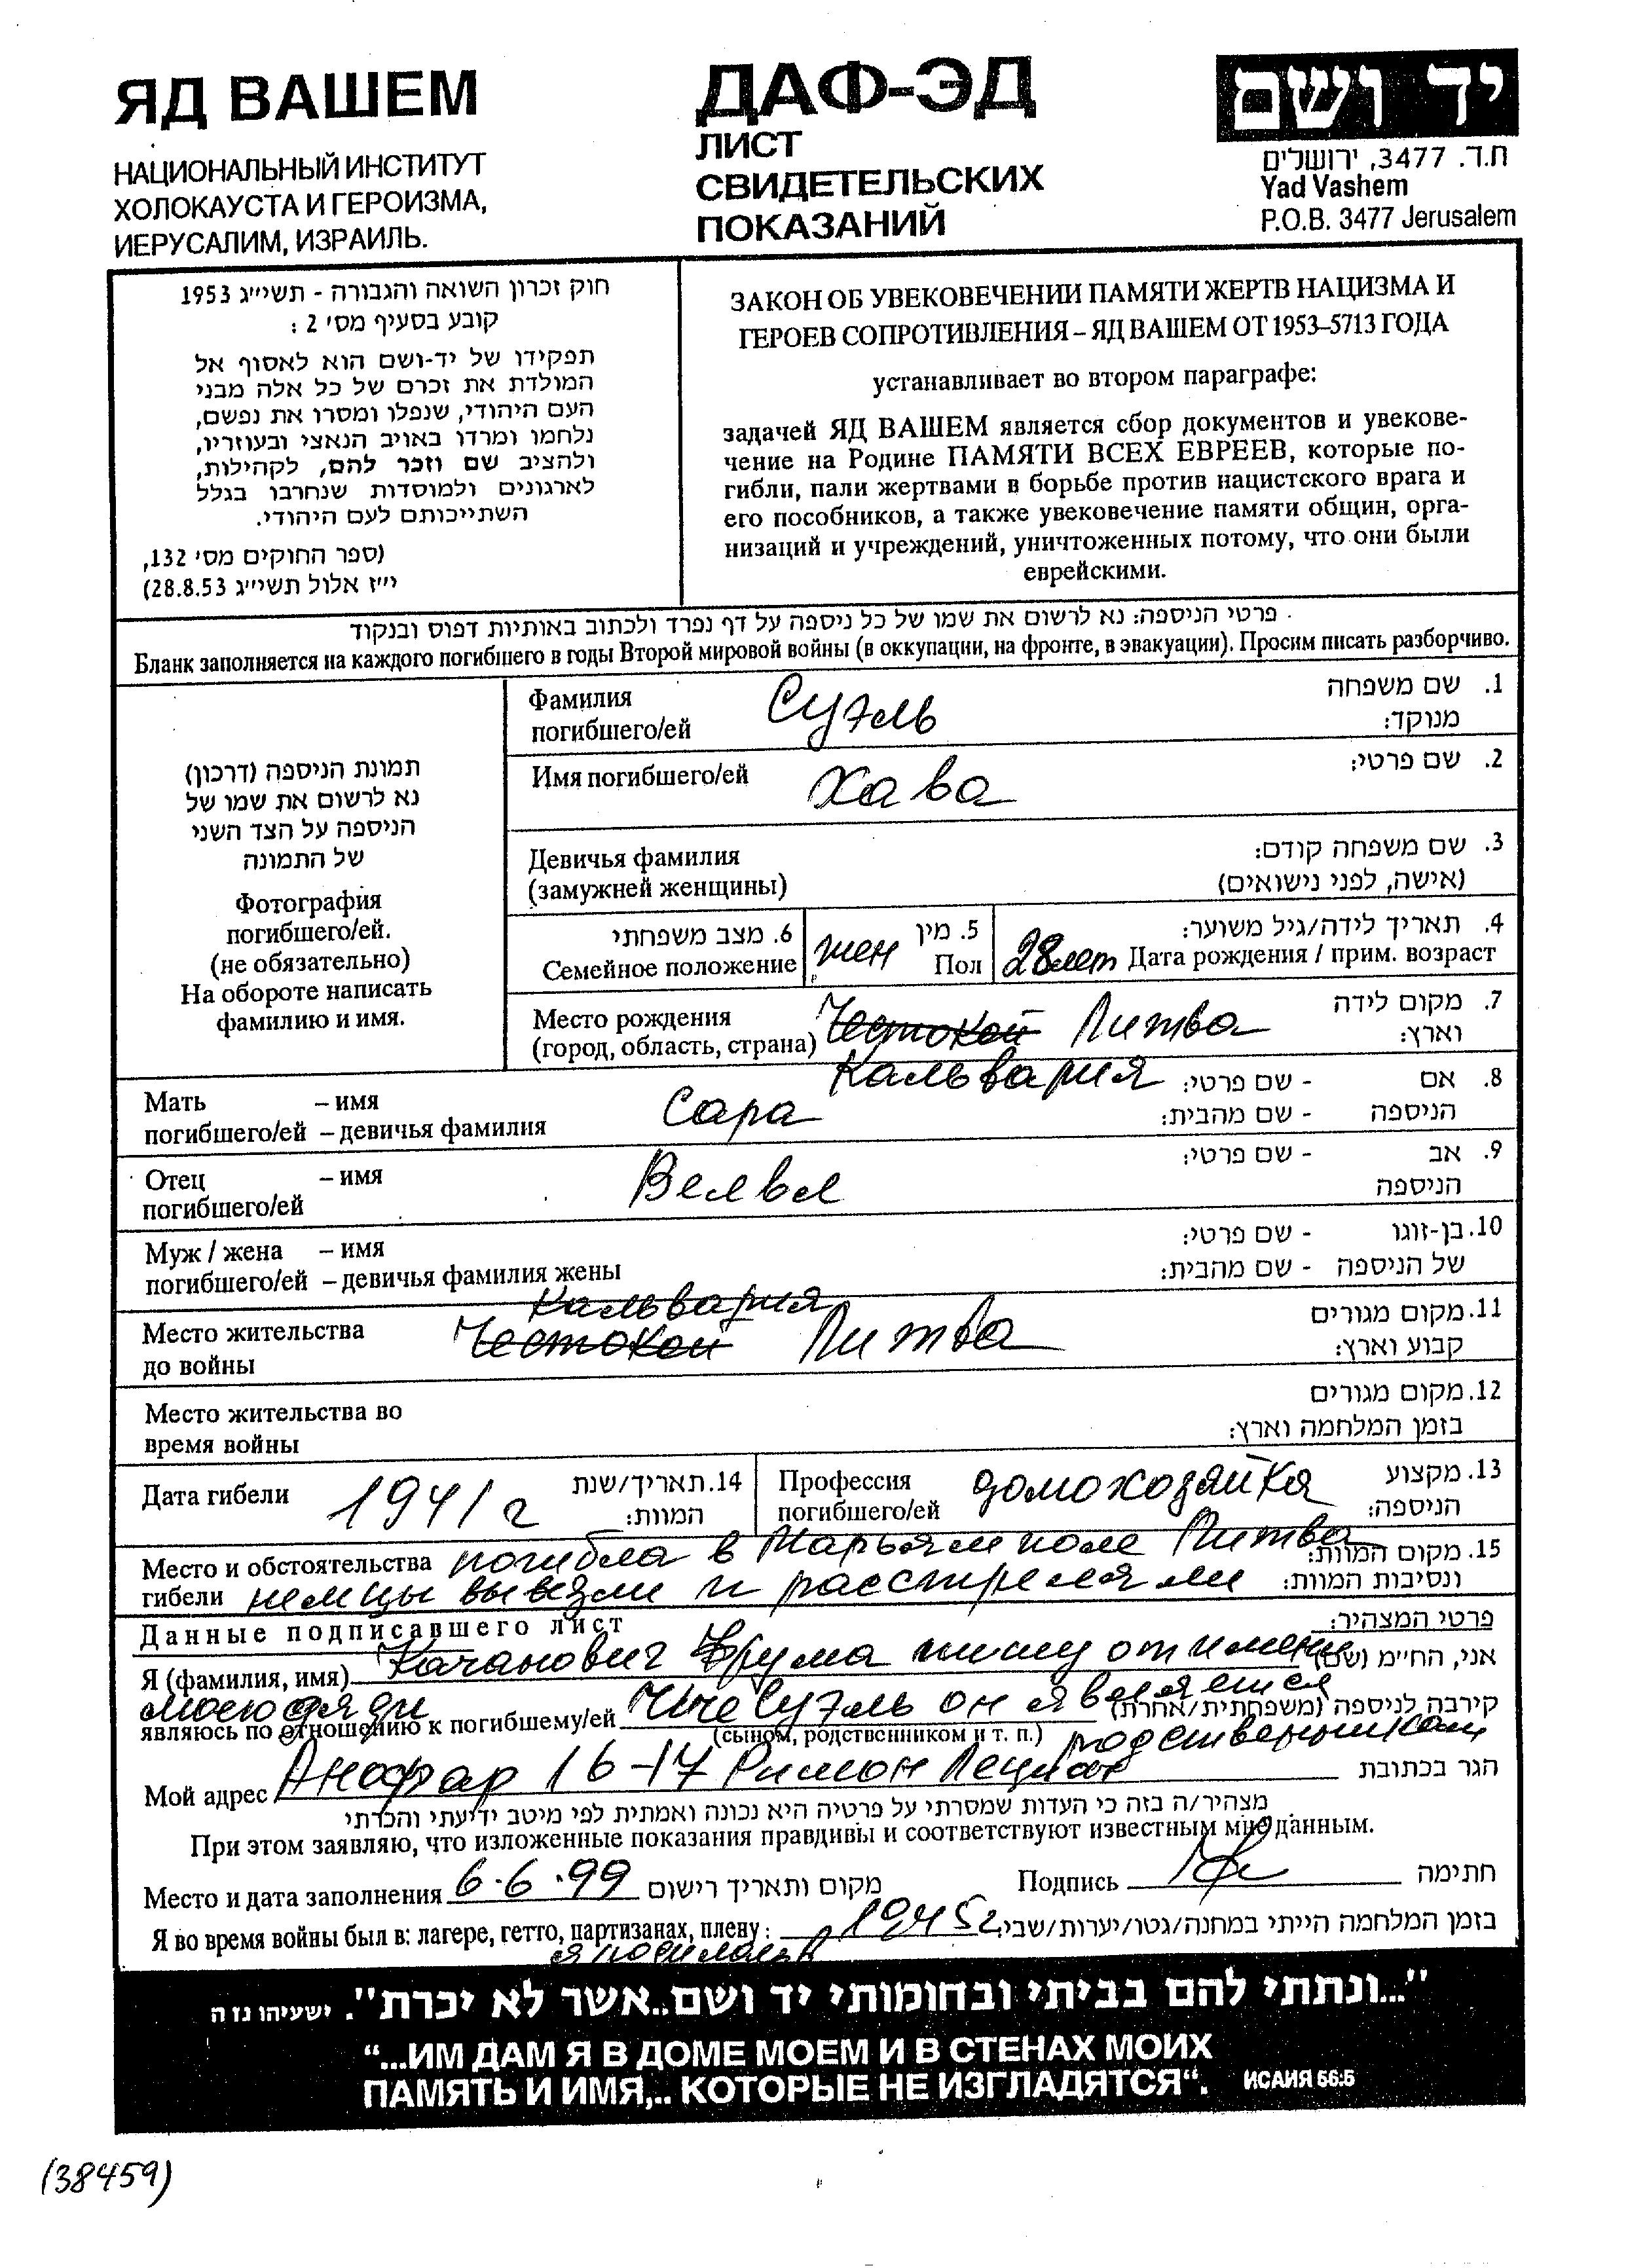 ЯД ВАШЕМ
НАЦИОНАЛЬНЫЙ ИНСТИТУТ
ХОЛОКАУСТА И ГЕРОИЗМА,
ИЕРУСАЛИМ, ИЗРАИЛЬ.
ДАФ-ЭД
ЛИСТ
СВИДЕТЕЛЬСКИХ
ПОКАЗАНИЙ
יד ושם
ת.ד. 3477, ירושלים
Yad Vashem
P.O.B. 3477 Jerusalem
חוק זכרון השואה והגבורה - תשי״ג 1953
קובע בסעיף מס׳ 2 :
תפקידו של יד-ושם הוא לאסוף אל
המולדת את זכרם של כל אלה מבני
העם היהודי, שנפלו ומסרו את נפשם,
נלחמו ומרדו באויב הנאצי ובעוזריו,
ולהציב שם וזכר להם, לקהילות,
לארגונים ולמוסדות שנחרבו בגלל
השתייכותם לעם היהודי.
(ספר החוקים מס׳ 132,
י״ז אלול תשי״ג 28.8.53)
ЗАКОН ОБ УВЕКОВЕЧЕНИИ ПАМЯТИ ЖЕРТВ НАЦИЗМА И
ГЕРОЕВ СОПРОТИВЛЕНИЯ – ЯД ВАШЕМ ОТ 1953–5713 ГОДА
устанавливает во втором параграфе:
задачей ЯД ВАШЕМ является сбор документов и увекове-
чение на Родине ПАМЯТИ ВСЕХ ЕВРЕЕВ, которые по-
гибли, пали жертвами в борьбе против нацистского врага и
его пособников, а также увековечение памяти общин, орга-
низаций и учреждений, уничтоженных потому, что они были
еврейскими.
פרטי הניספה: נא לרשום את שמו של כל ניספה על דף נפרד ולכתוב באותיות דפוס ובנקוד
Бланк заполняется на каждого погибшего в годы Второй мировой войны (в оккупации, на фронте, в эвакуации). Просим писать разборчиво.
תמונת הניספה (דרכון)
נא לרשום את שמו של
הניספה על הצד השני
של התמונה
Фотография
погибшего/ей.
(не обязательно)
На обороте написать
фамилию и имя.
Фамилия Суэль 1. שם משפחה
погибшего/ей מנוקד:
Имя погибшего/ей Хава 2. שם פרטי:
Девичья фамилия 3. שם משפחה קודם:
(замужней женщины) (אישה, לפני נישואים)
6. מצב משפחתי 5. מין 4. תאריך לידה/גיל משוער:
Семейное положение жен Пол 28 лет Дата рождения / прим. возраст
Место рождения Честокой Литва 7. מקום לידה
(город, область, страна) וארץ:
Кальвария
Мать – имя Сара 8. אם - שם פרטי:
погибшего/ей – девичья фамилия הניספה - שם מהבית:
Отец – имя Велвл 9. אב - שם פרטי:
погибшего/ей הניספה
Муж / жена – имя 10. בן-זוגו - שם פרטי:
погибшего/ей – девичья фамилия жены של הניספה - שם מהבית:
Кальвария
Место жительства Честокой Литва 11. מקום מגורים
до войны קבוע וארץ:
Место жительства во 12. מקום מגורים
время войны בזמן המלחמה וארץ:
Дата гибели 1941 г 14. תאריך/שנת המוות:
Профессия домохозяйка 13. מקצוע
погибшего/ей הניספה:
Место и обстоятельства погибла в Марьямполе Литва 15. מקום המוות:
гибели немцы вывезли и расстреляли ונסיבות המוות:
Данные подписавшего лист פרטי המצהיר:
Я (фамилия, имя) Каганович Фрума пишу от имени אני, החי״מ (שם)
моего дяди
являюсь по отношению к погибшему/ей Суэль он является קירבה לניספה (משפחתית/אחרת)
(сыном, родственником и т. п.) родственником
Мой адрес 16-17 הגר בכתובת
מצהיר/ה בזה כי העדות שמסרתי על פרטיה היא נכונה ואמתית לפי מיטב ידיעתי והכרתי
При этом заявляю, что изложенные показания правдивы и соответствуют известным мне данным.
Место и дата заполнения 6.6.99 מקום ותאריך רישום Подпись חתימה
Я во время войны был в: лагере, гетто, партизанах, плену: 1945г בזמן המלחמה הייתי במחנה/גטו/יערות/שבי:
я родилась в
"...ונתתי להם בביתי ובחומותי יד ושם..אשר לא יכרת". ישעיהו נו ה
“...ИМ ДАМ Я В ДОМЕ МОЕМ И В СТЕНАХ МОИХ
ПАМЯТЬ И ИМЯ,.. КОТОРЫЕ НЕ ИЗГЛАДЯТСЯ“. ИСАИЯ 56:5
(38459)